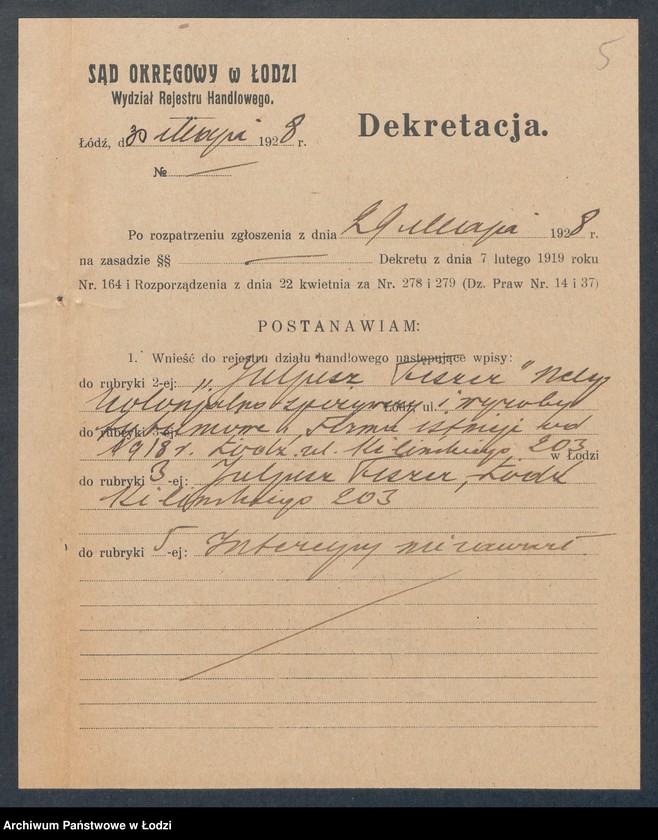 5
SĄD OKRĘGOWY w ŁODZI
Wydział Rejestru Handlowego.
Dekretacja.
Łódź, d. 30 Maja 1928 r.
№
Po rozpatrzeniu zgłoszenia z dnia 29 Maja 1928 r.
na zasadzie §§ Dekretu z dnia 7 lutego 1919 roku
Nr. 164 i Rozporządzenia z dnia 22 kwietnia za Nr. 278 i 279 (Dz. Praw Nr. 14 i 37)
POSTANAWIAM:
1. Wnieść do rejestru działu handlowego następujące wpisy:
do rubryki 2-ej: „Juljusz Fiszer"
kolonjalno spożywczy Łódź, ul. i wyroby
do rubryki Firma istnieje od
1918 r. Łódź ul. Kilińskiego 203 w Łodzi
do rubryki 3-ej: Juljusz Fiszer, Łódź
Kilińskiego 203
do rubryki 5-ej: Intercyzy nie zawarł.
Archiwum Państwowe w Łodzi